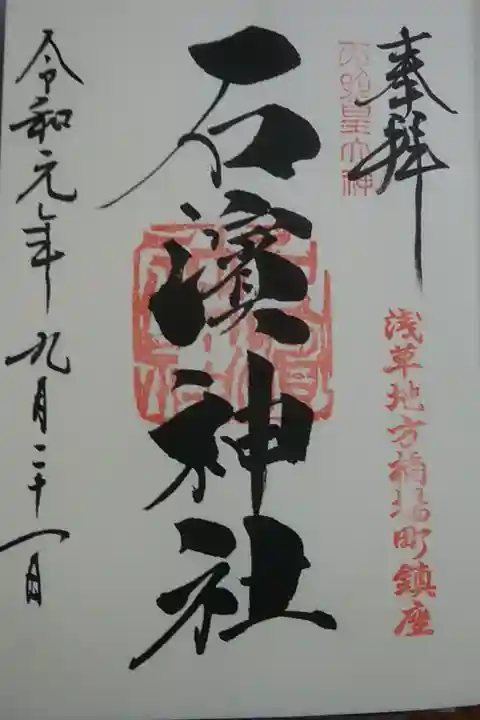 奉拝
天照皇大神
浅草地方橋場町鎮座
石濱神社
令和元年九月二十一日